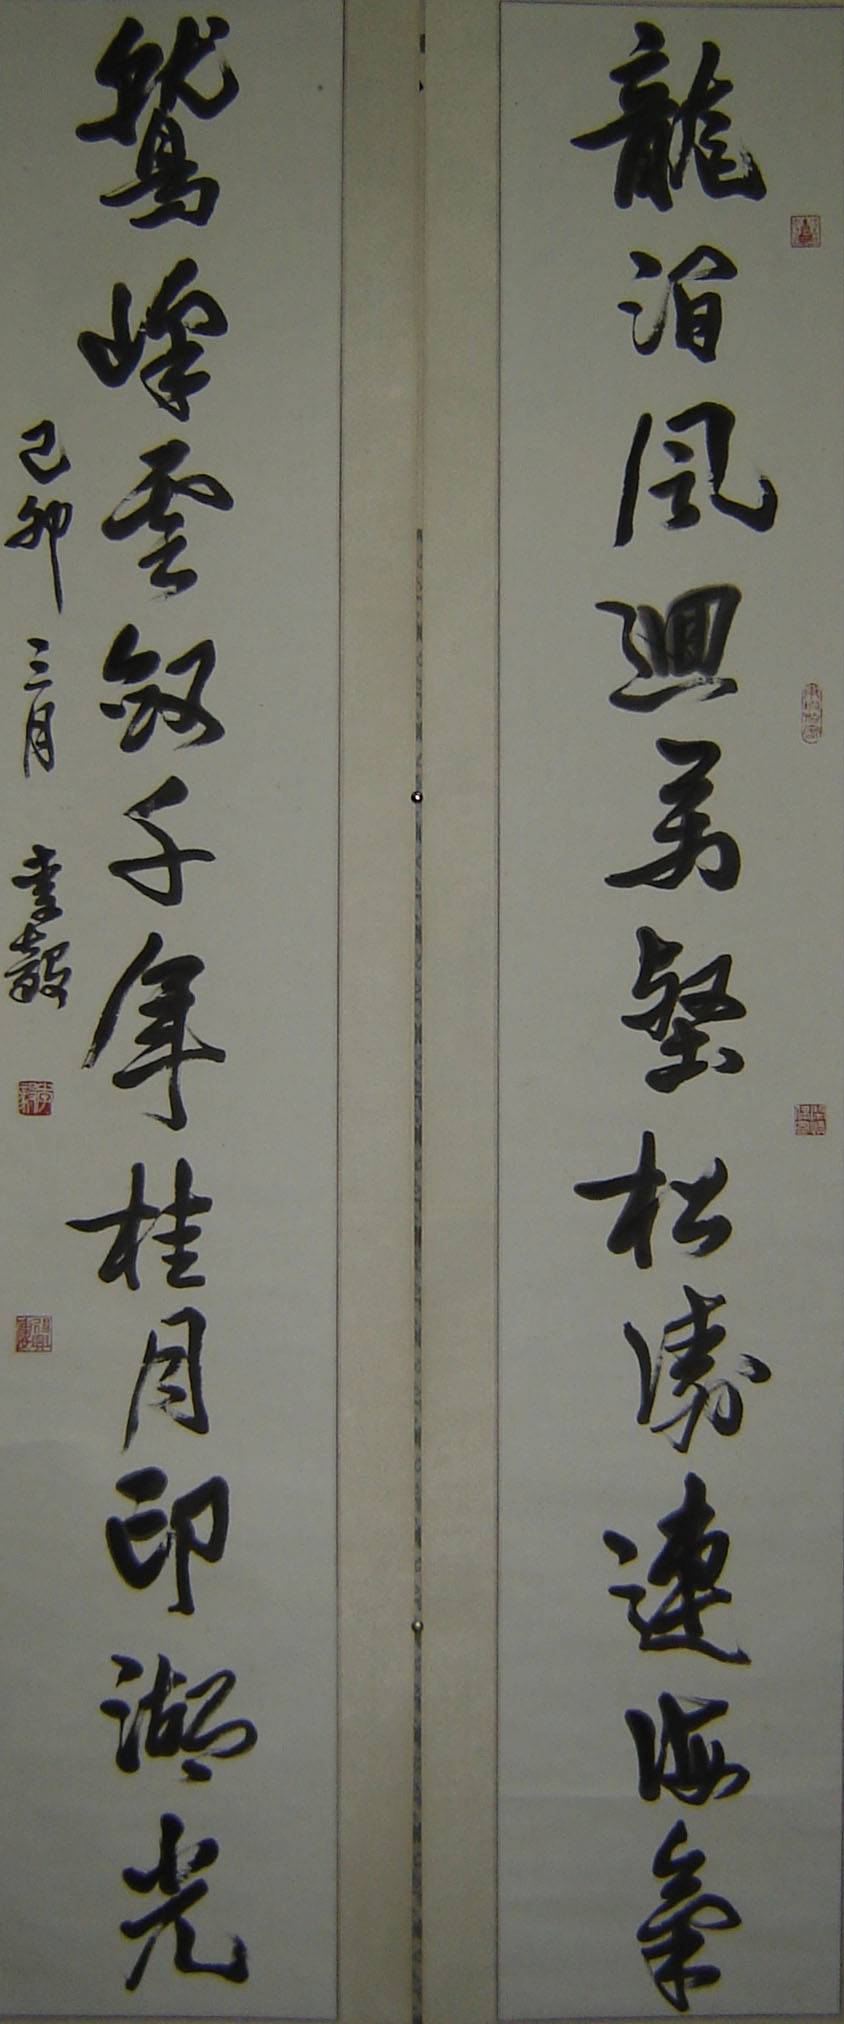 龍澗風迴萬壑松濤連海氣
鷲峰雲斂千年桂月印湖光
己卯三月